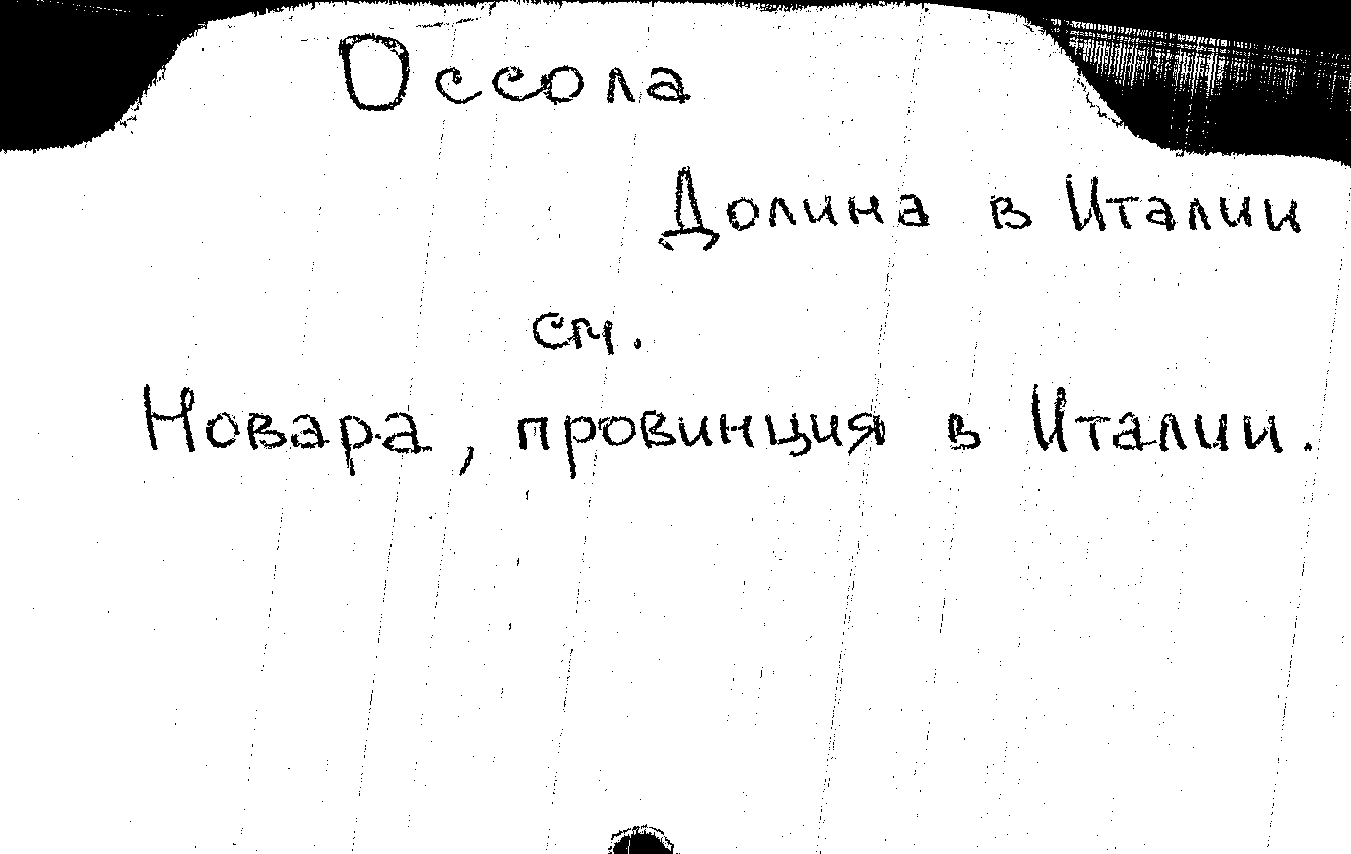 Оссола
Долина в Италии
см.
Новара, провинция в Италии.